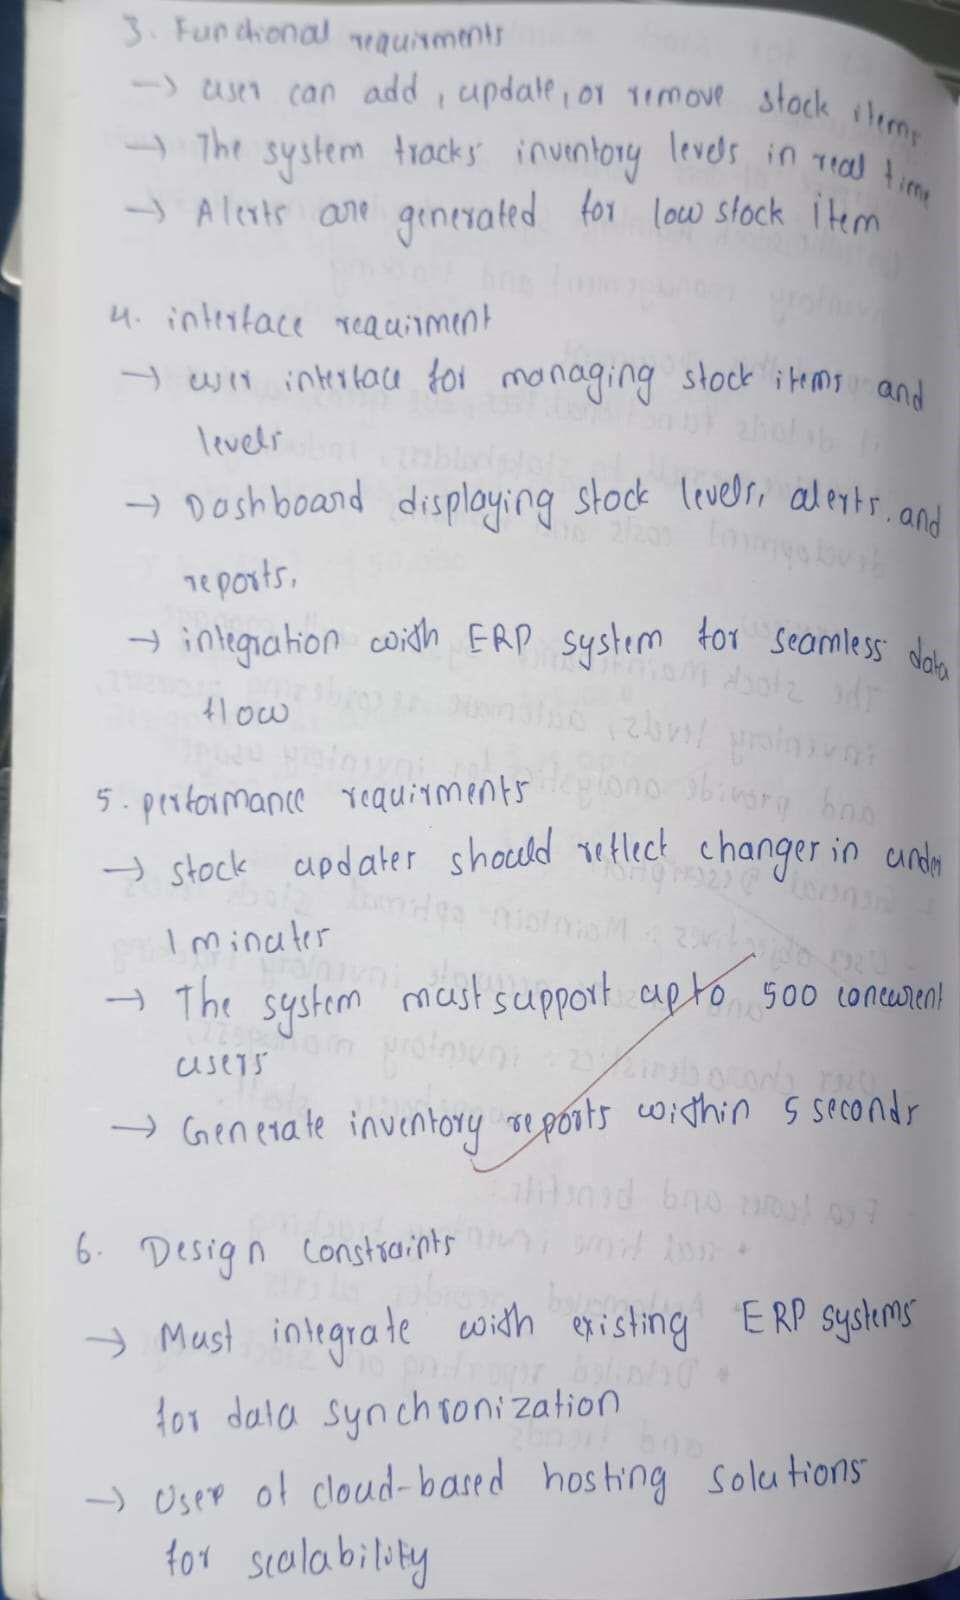 3. Functional requirments
→ user can add, update, or remove stock items
→ The system tracks inventory levels in real time
→ Alerts are generated for low stock item
4. interface requirment
→ user interface for managing stock items and
levels
→ Dashboard displaying stock levels, alerts. and
reports.
→ integration with ERP system for seamless data
flow
5. performance requirments
→ stock updates should reflect changes in under
1 minutes
→ The system must support up to 500 concurent
users
→ Generate inventory reports within 5 seconds
6. Design constraints
→ Must integrate with existing ERP systems
for data synchronization
→ of cloud-based hosting solutions
for scalability